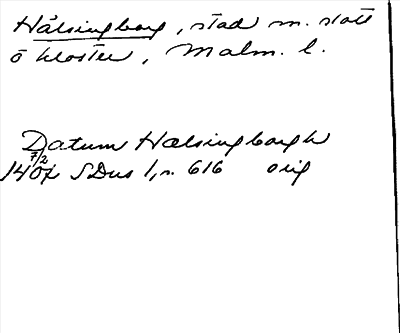 Hälsingborg, stad m. slott
o kloster, Malm. l.
Datum Hælsingborgh
7/2
140 SDns 1, n. 616 orig